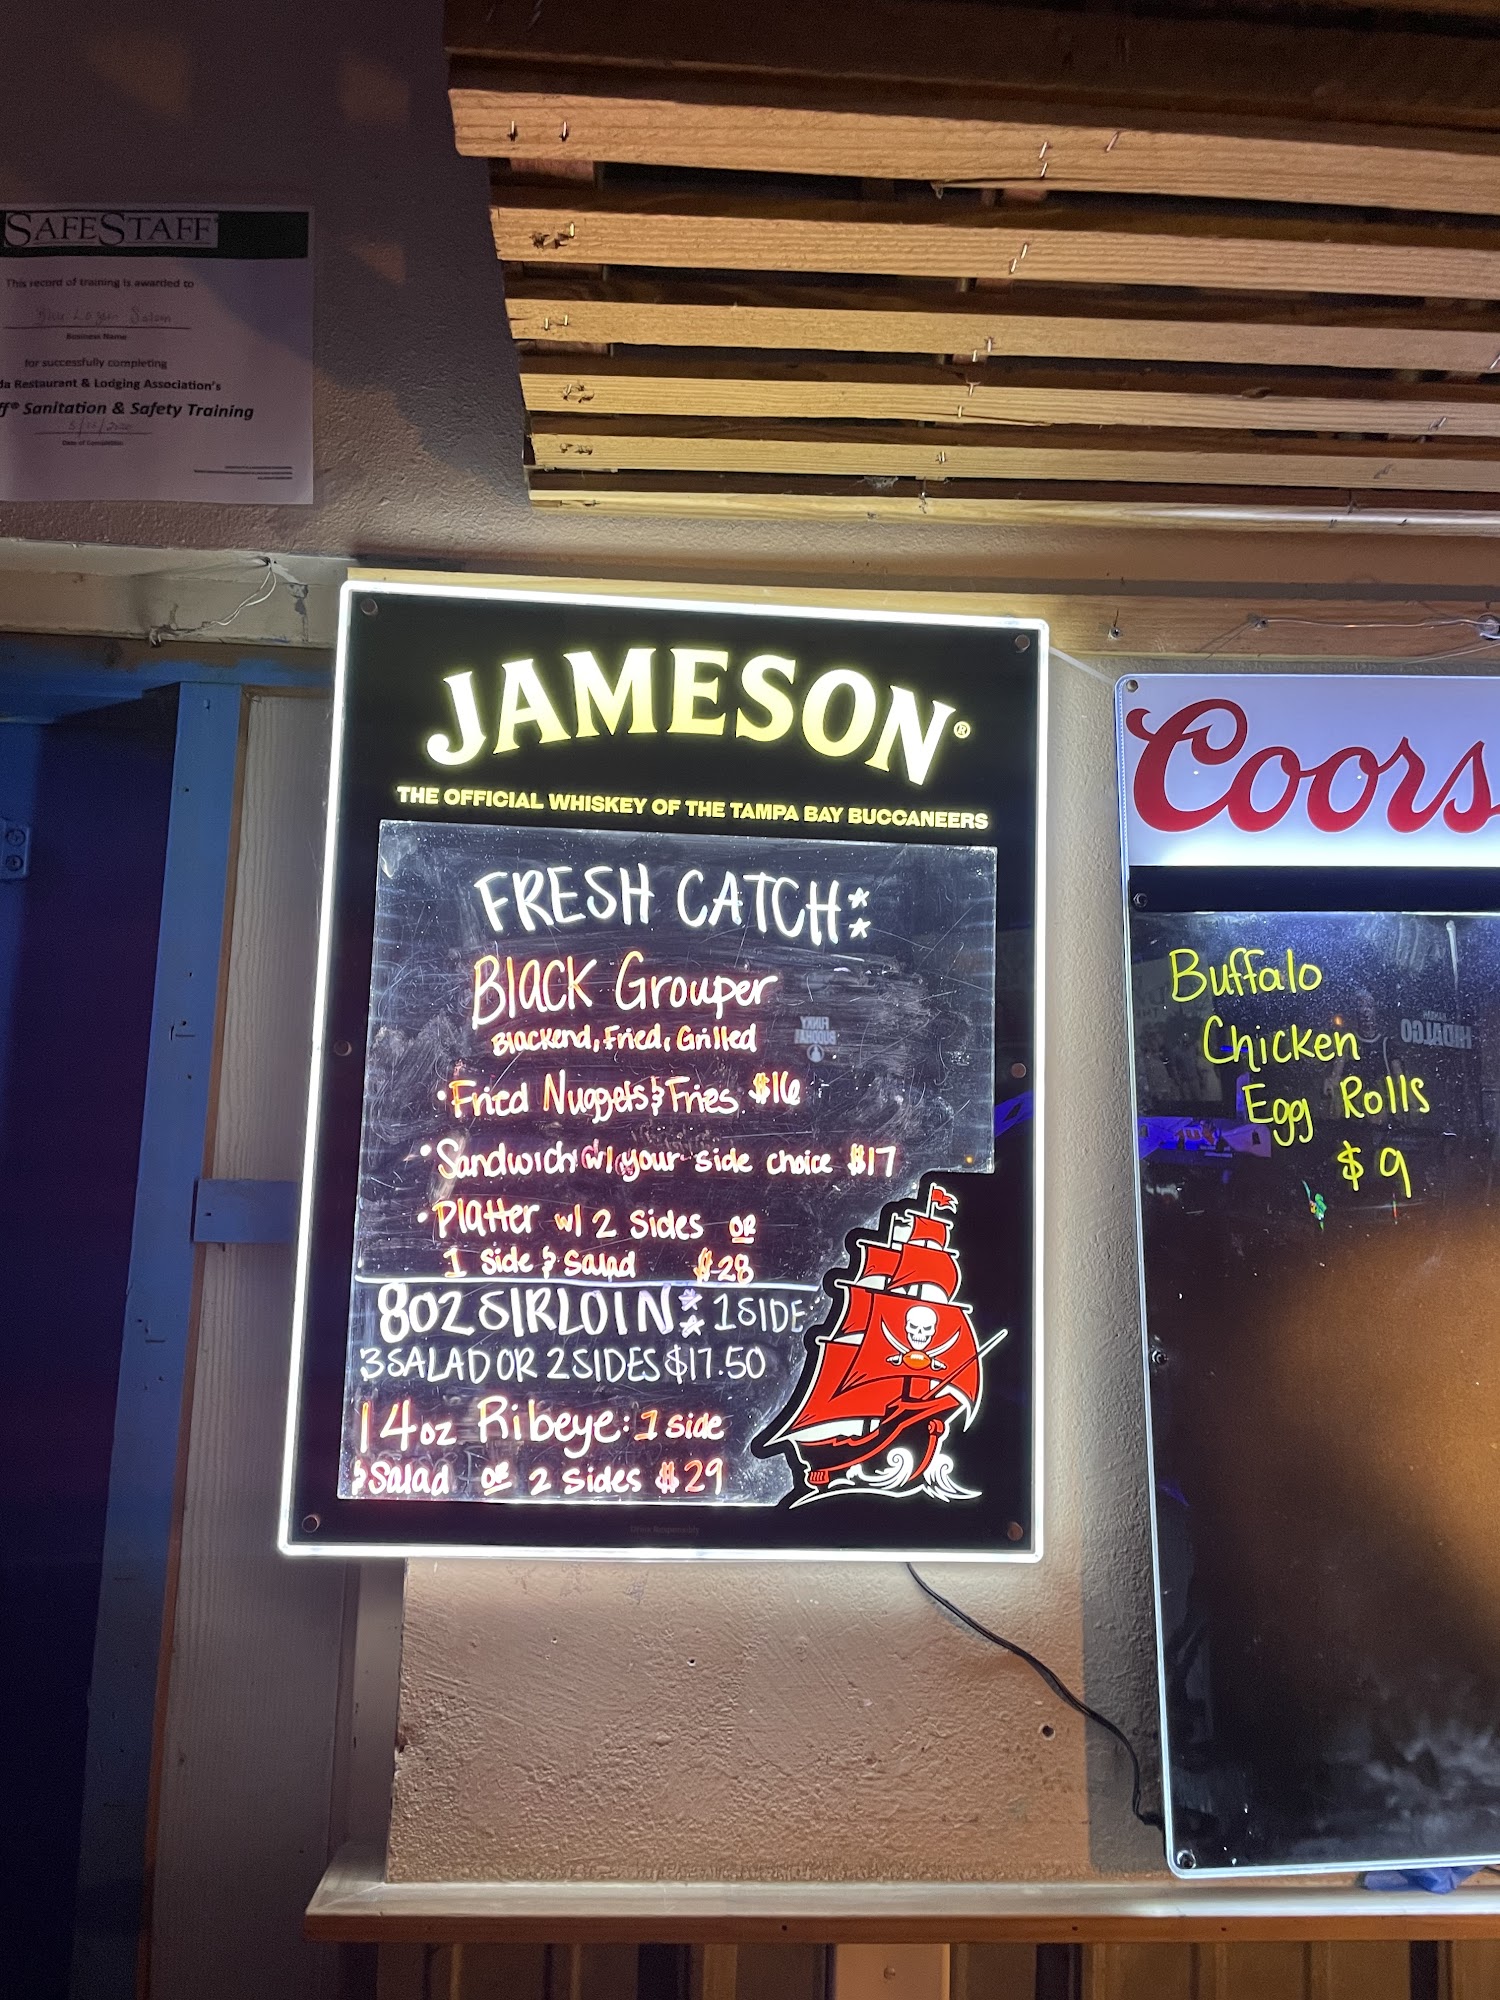 SAFESTAFF
This record of training is awarded to
Business Name
for successfully completing
Restaurant & Lodging Association's
Sanitation & Safety Training
Date of Completion
JAMESON®
THE OFFICIAL WHISKEY OF THE TAMPA BAY BUCCANEERS
FRESH CATCH:
BLACK Grouper
Blackend, Fried, Grilled
• Fried Nuggets & Fries $16
• Sandwich w/ your side choice $17
• Platter w/ 2 sides or
1 side & Salad $28
8OZ SIRLOIN: 1 SIDE
& SALAD OR 2 SIDES $17.50
14oz Ribeye: 1 side
& Salad or 2 sides $29
Drink Responsibly
Coors
Buffalo
Chicken
Egg Rolls
$9
FUNKY
BUDDHA
HIDALGO